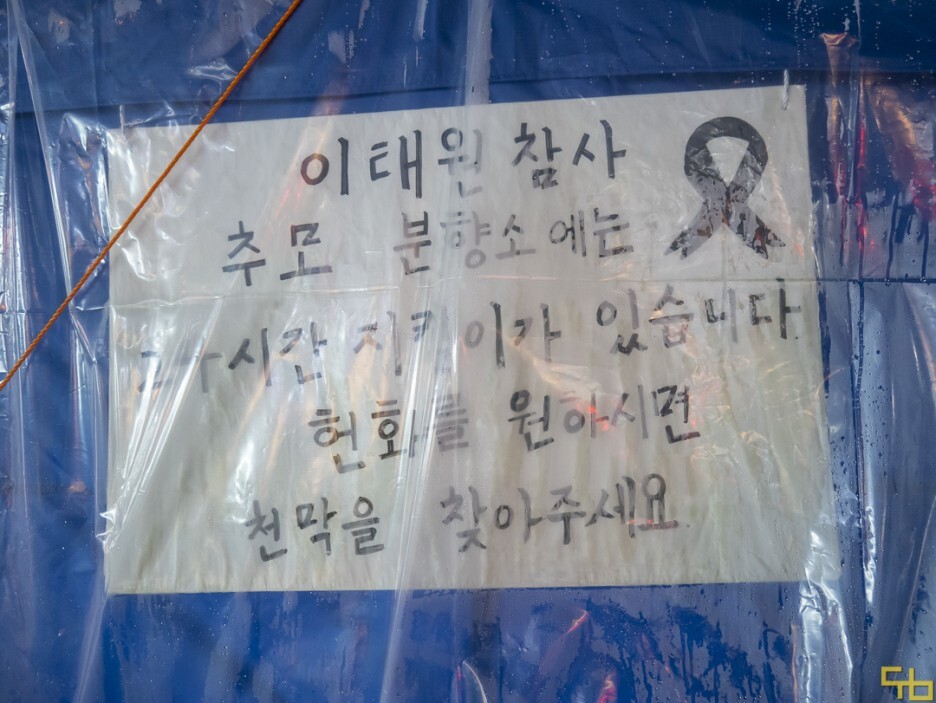 이태원 참사
추모 분향소에는
24시간 지킴이가 있습니다
헌화를 원하시면
천막을 찾아주세요